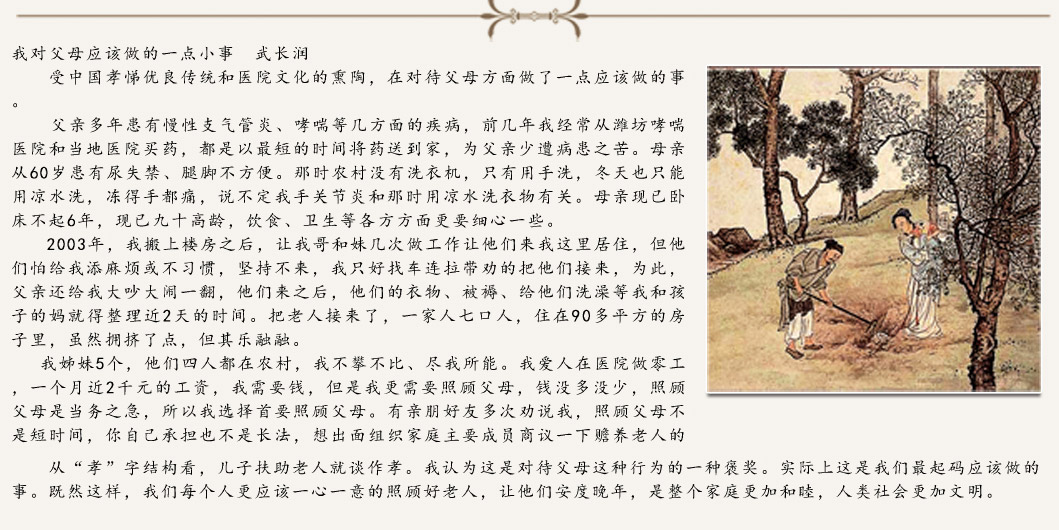 我对父母应该做的一点小事 武长润
受中国孝悌优良传统和医院文化的熏陶，在对待父母方面做了一点应该做的事
。
父亲多年患有慢性支气管炎、哮喘等几方面的疾病，前几年我经常从潍坊哮喘
医院和当地医院买药，都是以最短的时间将药送到家，为父亲少遭病患之苦。母亲
从60岁患有尿失禁、腿脚不方便。那时农村没有洗衣机，只有用手洗，冬天也只能
用凉水洗，冻得手都痛，说不定我手关节炎和那时用凉水洗衣物有关。母亲现已卧
床不起6年，现已九十高龄，饮食、卫生等各方方面更要细心一些。
2003年，我搬上楼房之后，让我哥和妹几次做工作让他们来我这里居住，但他
们怕给我添麻烦或不习惯，坚持不来，我只好找车连拉带劝的把他们接来，为此，
父亲还给我大吵大闹一翻，他们来之后，他们的衣物、被褥、给他们洗澡等我和孩
子的妈就得整理近2天的时间。把老人接来了，一家人七口人，住在90多平方的房
子里，虽然拥挤了点，但其乐融融。
我姊妹5个，他们四人都在农村，我不攀不比、尽我所能。我爱人在医院做零工
，一个月近2千元的工资，我需要钱，但是我更需要照顾父母，钱没多没少，照顾
父母是当务之急，所以我选择首要照顾父母。有亲朋好友多次劝说我，照顾父母不
是短时间，你自己承担也不是长法，想出面组织家庭主要成员商议一下赡养老人的
从“孝”字结构看，儿子扶助老人就谈作孝。我认为这是对待父母这种行为的一种褒奖。实际上这是我们最起码应该做的
事。既然这样，我们每个人更应该一心一意的照顾好老人，让他们安度晚年，是整个家庭更加和睦，人类社会更加文明。